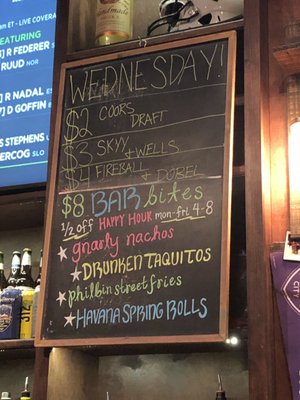 AM ET - LIVE COVERA
FEATURING
] R FEDERER
RUUD NOR
] R NADAL ESP
] D GOFFIN
STEPHENS U
ERCOG SLO
WEDNESDAY!
$2 COORS DRAFT
$3 SKYY & WELLS
$4 FIREBALL & DOBEL
$8 BAR bites
1/2 off HAPPY HOUR mon-fri 4-8
gnarly nachos
DRUNKEN TAQUITOS
philbin street fries
HAVANA SPRING ROLLS